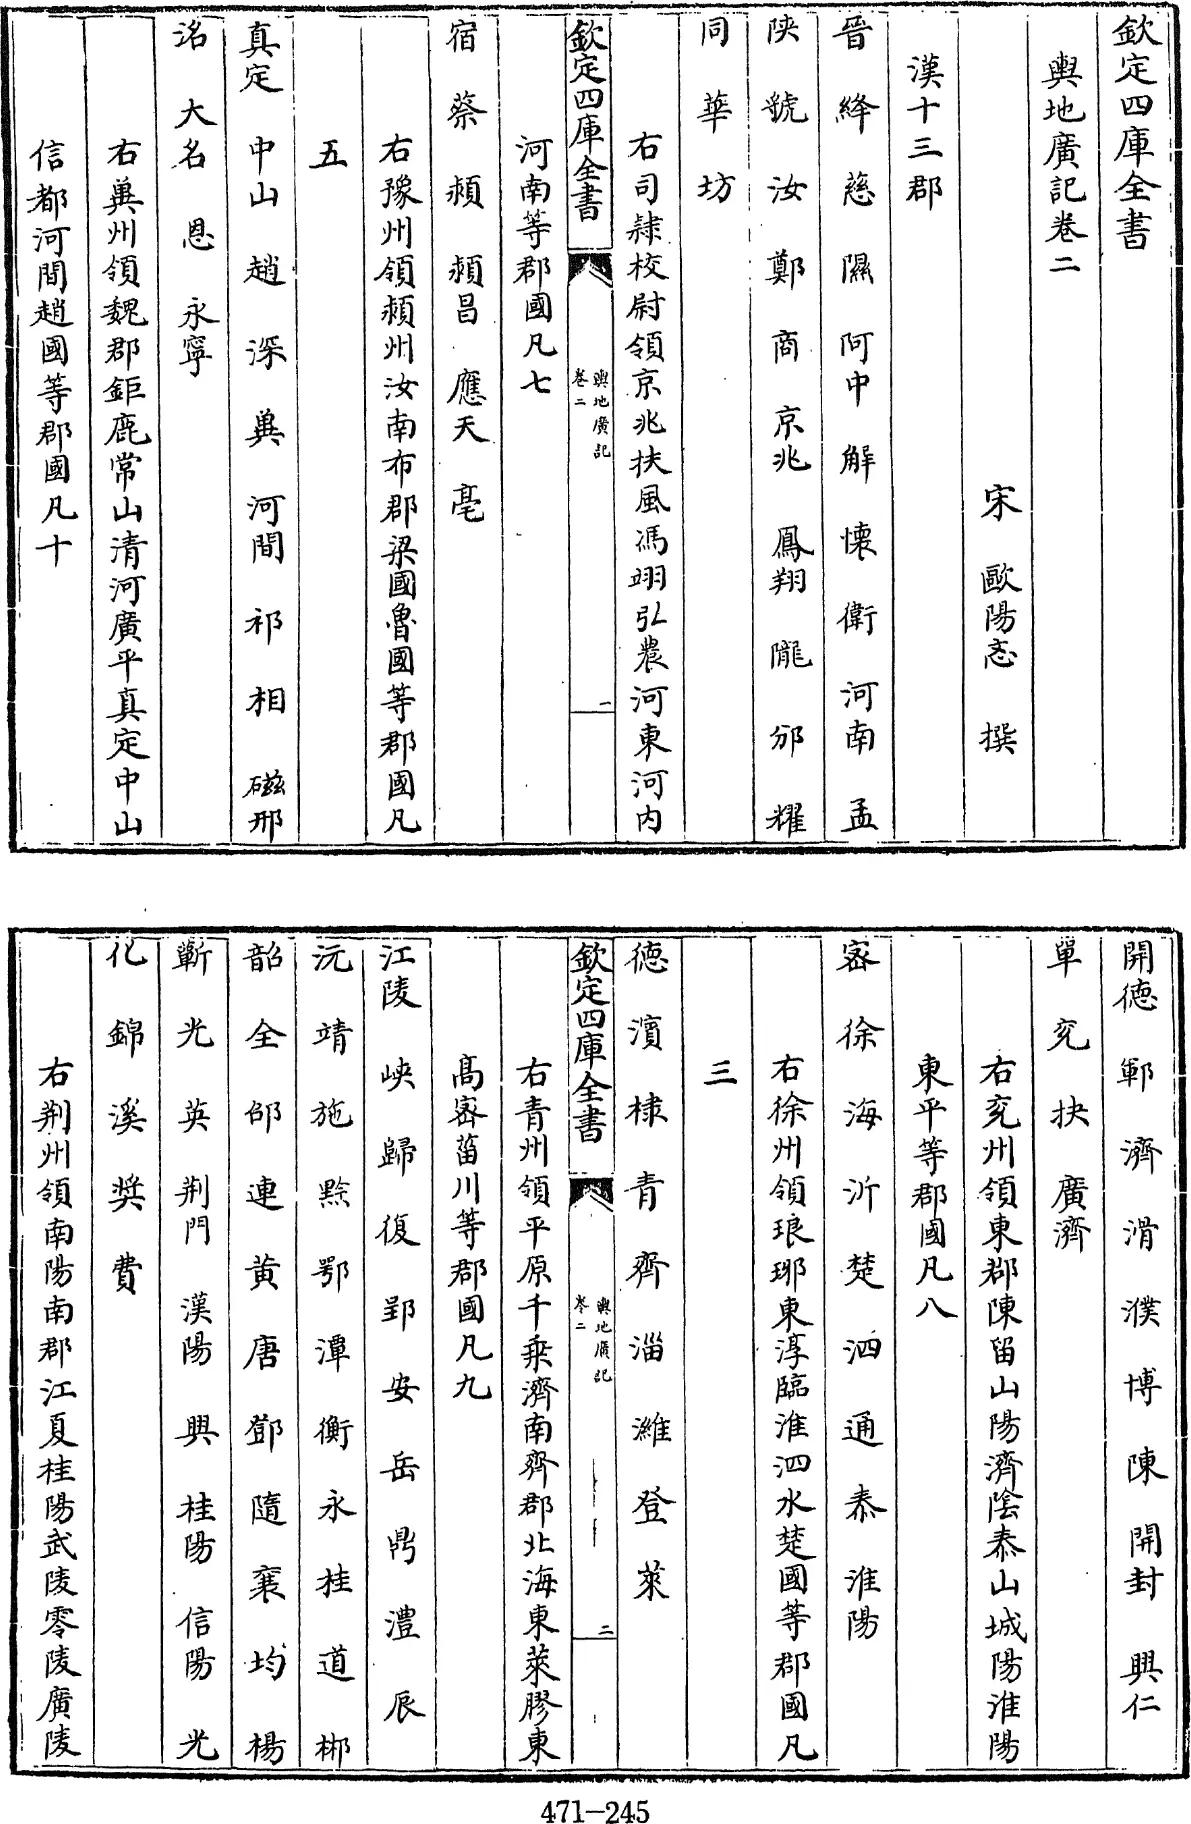 欽定四庫全書
輿地廣記卷二
宋 歐陽忞 撰
漢十三郡
晉 絳 慈 隰 河中 解 懷 衛 河南 孟
陜 虢 汝 鄭 商 京兆 鳳翔 隴 邠 耀
同 華 坊
右司隸校尉領京兆扶風馮翊弘農河東河内
欽定四庫全書
輿地廣記
卷二
一
河南等郡國凡七
宿 蔡 潁 潁昌 應天 亳
右豫州領潁州汝南布郡梁國魯國等郡國凡
五
真定 中山 趙 深 冀 河間 祁 相 磁 邢
洺 大名 恩 永寧
右冀州領魏郡鉅鹿常山清河廣平真定中山
信都河間趙國等郡國凡十
開德 鄆 濟 滑 濮 博 陳 開封 興仁
單 兖 抉 廣濟
右兖州領東郡陳留山陽濟陰泰山城陽淮陽
東平等郡國凡八
密 徐 海 沂 楚 泗 通 泰 淮陽
右徐州領琅琊東淳臨淮泗水楚國等郡國凡
三
德 濵 棣 青 齊 淄 濰 登 萊
欽定四庫全書
輿地廣記
卷二
二
右青州領平原千乗濟南齊郡北海東萊膠東
髙密菑川等郡國凡九
江陵 峽 歸 復 郢 安 岳 鼎 澧 辰
沅 靖 施 黔 鄂 潭 衡 永 桂 道 郴
韶 全 邵 連 黄 唐 鄧 隨 襄 均 楊
蘄 光 英 荆門 漢陽 興 桂陽 信陽 光
化 錦 溪 奨 費
右荆州領南陽南郡江夏桂陽武陵零陵廣陵
471-245